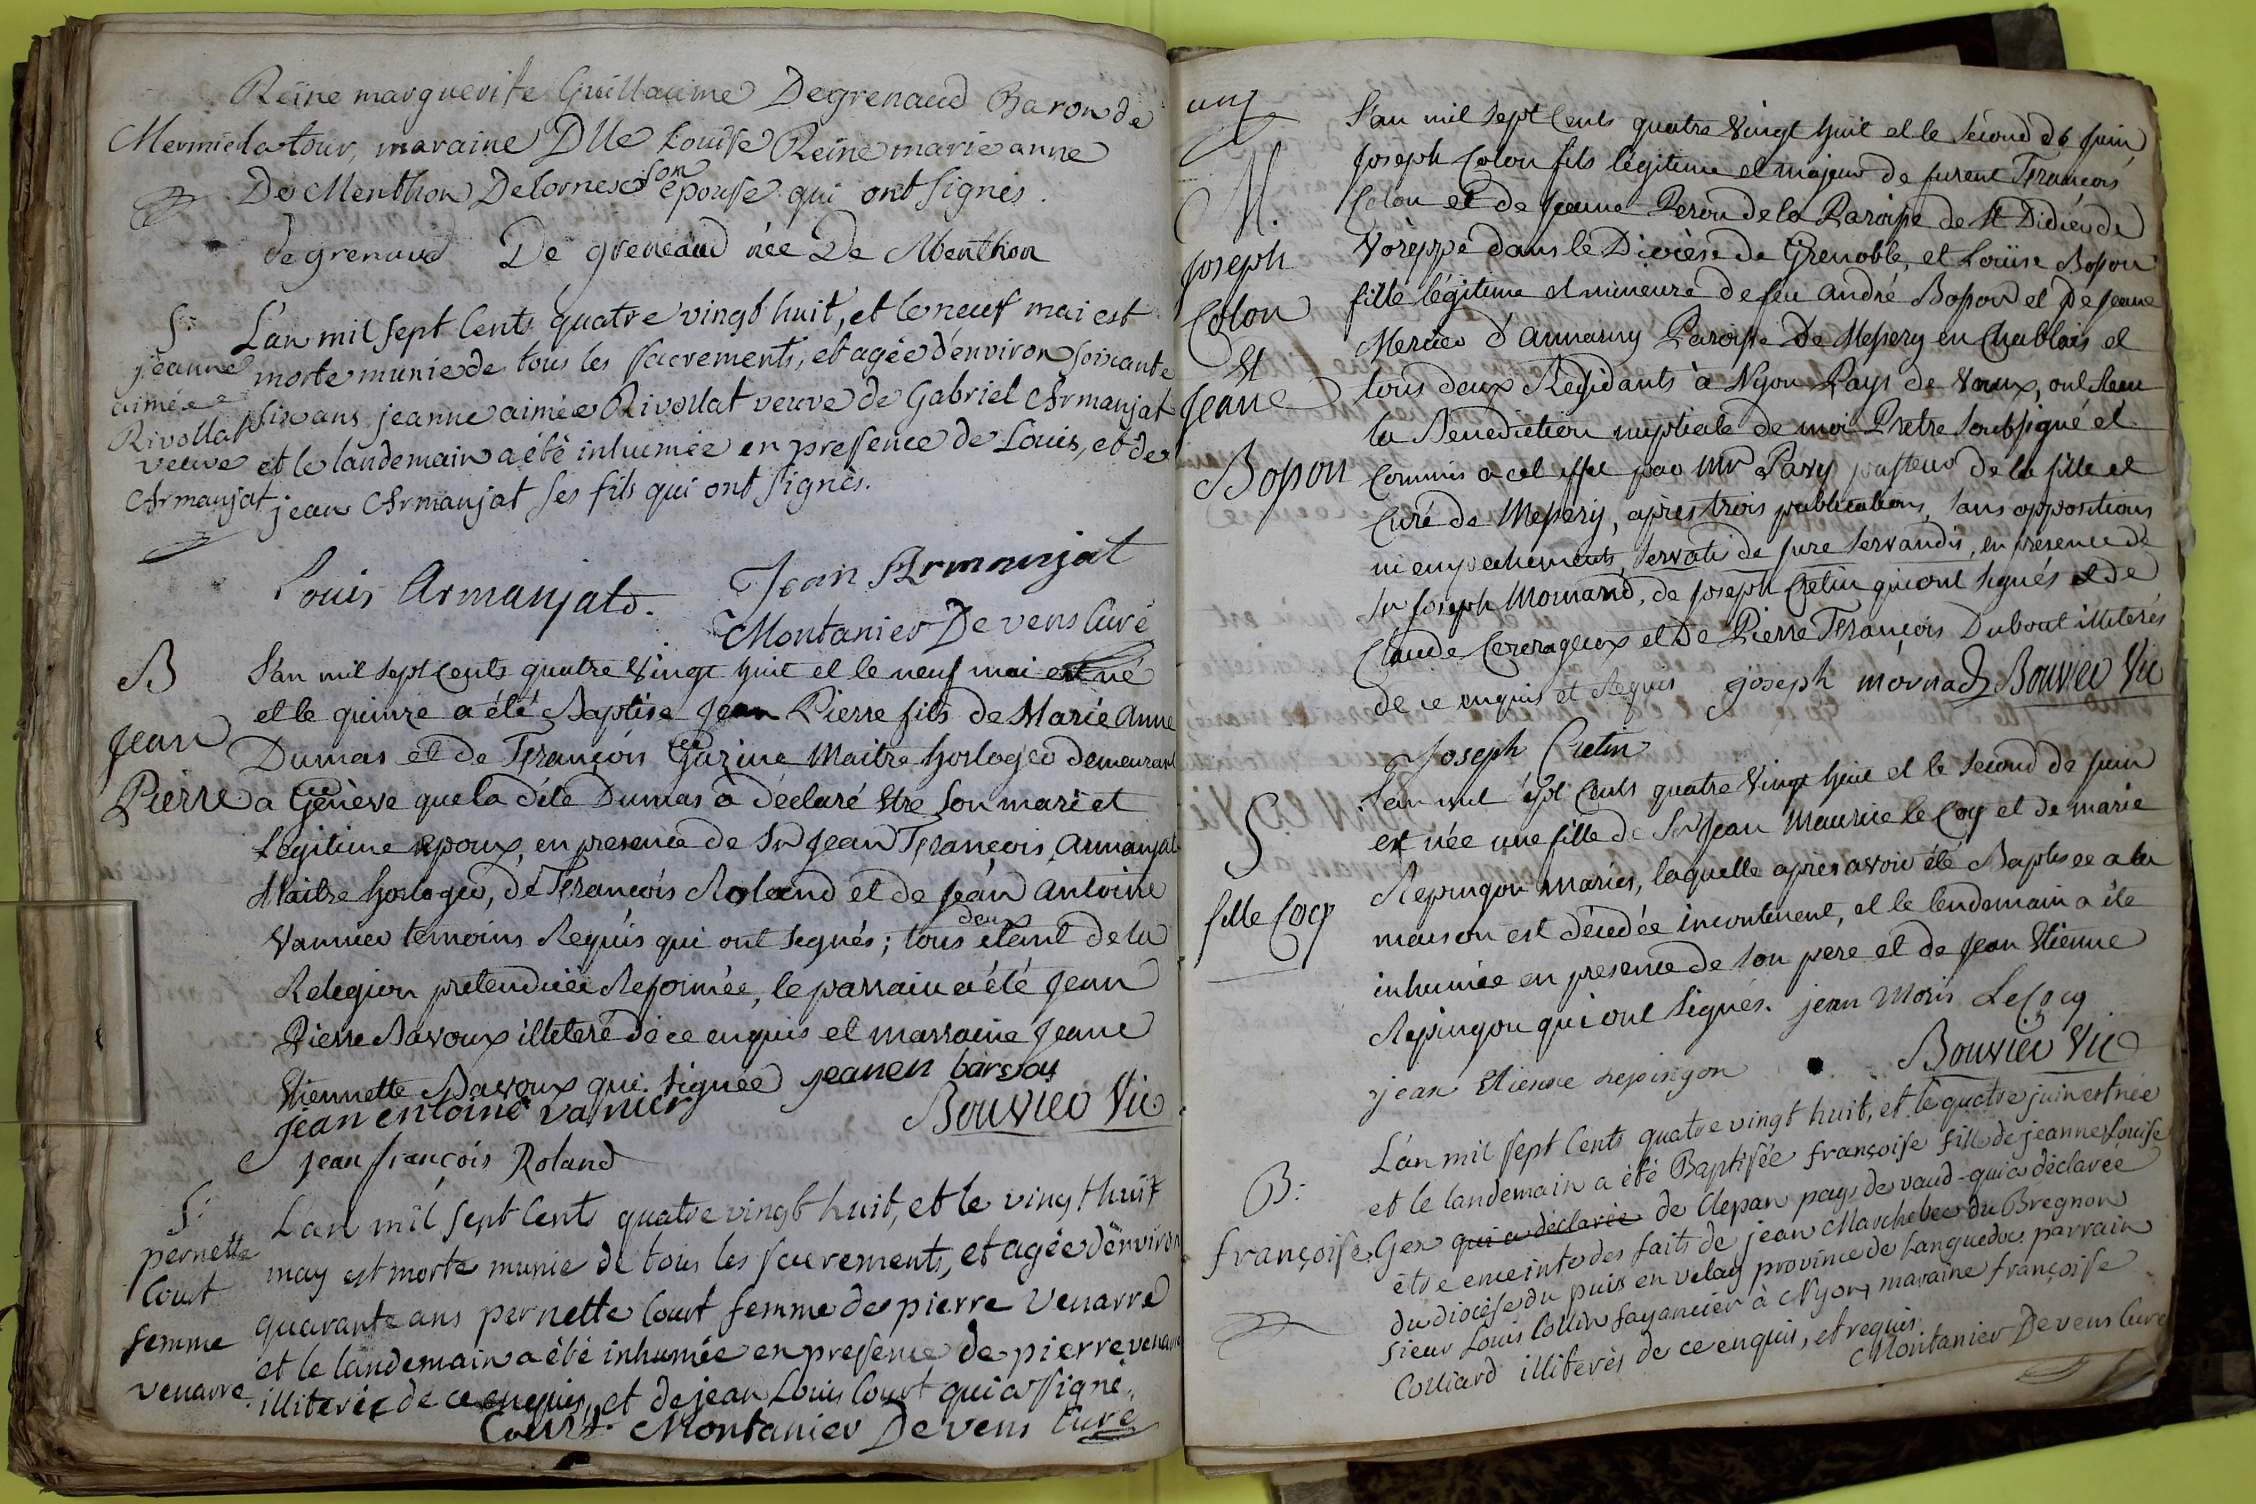 Reine marguerite Guillaume Degrenaud Baron de
Mermiedatour, maraine Dlle Louise Reine marie anne
De Menthon Delornex son epouse qui ont signés.
degrenaud De greneaud née De Menthon
S:
jeanne
aimée
Rivollat
veuve
Armanjat
L'an mil sept Cents quatre vingt huit, et le neuf mai est
morte munie de tous les sacrements, et agée d'environ soixante
six ans jeanne aimée Rivollat veuve de Gabriel Armanjat
et le landemain a été inhumée en presence de Louis, et de
jean Armanjat ses fils qui ont signés.
Louis Armanjat.
Jean Armanjat
Montanier Devens Curé
B
Jean
Pierre
L'an mil sept Cents quatre Vingt huit et le neuf mai est né
et le quinze a été Baptisé Jean Pierre fils de Marie Anne
Dumas et de François Gazine Maitre horloger demeurant
a Genève que la dite Dumas à déclaré Etre Son mari et
Legitime epoux, en presence de Sr Jean François, Armanjat
Maitre horloger, de François Roland et de Jean Antoine
Vannier temoins Requis qui ont Signés; tous deux etant de la
Religion pretendüee Reformée, le parrain a été Jean
Pierre Bavoux illeteré de ce enquis et marraine Jeane
Etiennette Bavoux qui signée jeanen
jean entoine vanier
Bouvier Vic
jean françois Roland
S:
pernette
Court
femme
venarre.
L'an mil sept Cents quatre vingt huit, et le vingt huit
may est morte munie de tous les sacrements, et agée d'environ
quarante ans pernette Court femme de pierre Venarre
et le landemain a été inhumée en presence de pierre venarre
illiterée de ce enquis, et de jean Louis Court qui a signé.
Court Montanier Devens Curé
M.
Joseph
Colon
Et
Jeane
Bosson
L'an mil sept Cents quatre Vingt huit et le Second de Juin
Joseph Colon fils légitime et majeur de furent François
Colon et de Jeanne Peron de la Paroisse de St Didier de
Voreppe dans le Diocèse de Grenoble, et Loüise Bosson
fille légitime et mineure de feu André Bosson et De Jeane
Mercier d'Annarmy Paroisse De Messery en Chablais et
tous deux Residants à Nyon Pays de Vaux, ont Recu
la Benediction nuptiale de moi Prêtre Soubsigné et
Commis a cet effet par Mr Pary pasteur de la fille et
Curé de Messery, après trois publications, Sans oppositions
ni empechements, Servatis de jure Servandis, en présence de
Sr Joseph Mornand, de Joseph Cretin qui ont Signés et de
Claude et De Pierre François Duboat illiterés
de ce enquis et Requis joseph mornad Bouvier Vic
Joseph Cretin
S
fille Cocq
L'an mil sept Cents quatre Vingt huit et le Second de Juin
est née une fille de Sr Jean Maurice le Coq et de marie
Repingon mariés, laquelle après avoir été Baptisee a la
maison est décédée incontinent, et le lendemain a été
inhumée en presence de Son pere et de Jean Etienne
Repingon qui ont Signés. jean Moris LeCocq
jean Etienne repingon
Bouvier Vic
B:
françoise.
L'an mil sept Cents quatre vingt huit, et le quatre juin est née
et le landemain a été Baptisée françoise fille de jeanne Louise
Gex qui a déclarée de Clepan pays de vaud - qui a déclarée
être enceinte des faits de jean Marchebee du Bregnon
du diocèse du puis en velay province de languedoc parrain
sieur Louis Collin fayancier à Nyon, maraine françoise
Colliard illiterés de ce enquis, et requis.
Montanier Devens Curé